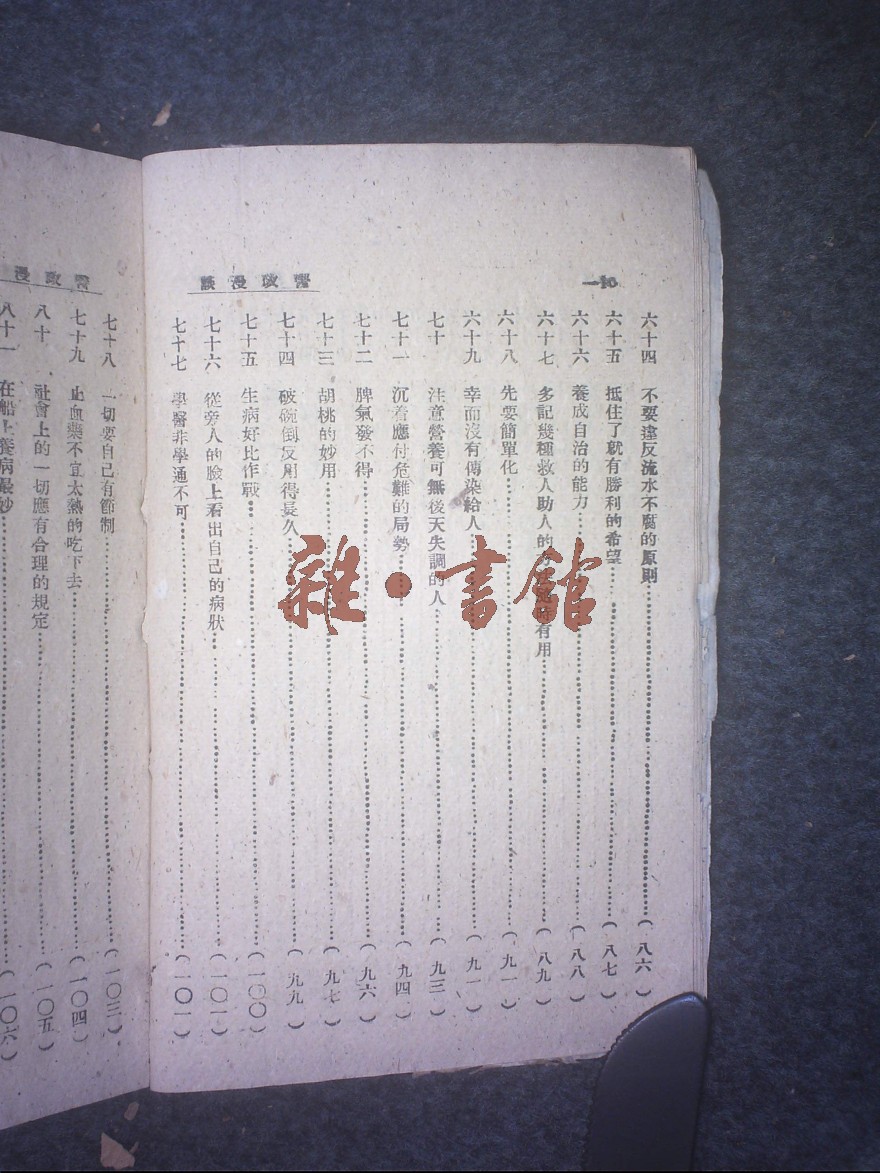 十一
醫政漫談
六十四 不要違反流水不腐的原則……(八六)
六十五 抵住了就有勝利的希望……(八七)
六十六 養成自治的能力……(八八)
六十七 多記幾種救人助人的 有用……(八九)
六十八 先要簡單化……(九一)
六十九 幸而沒有傳染給人……(九一)
七十 注意營養可無後天失調的人……(九三)
七十一 沉着應付危難的局勢……(九四)
七十二 脾氣發不得……(九六)
七十三 胡桃的妙用……(九七)
七十四 破碗倒反用得長久……(九九)
七十五 生病好比作戰……(一〇〇)
七十六 從旁人的臉上看出自己的病狀……(一〇一)
七十七 學醫非學通不可……(一〇一)
醫政漫
七十八 一切要自己有節制……(一〇三)
七十九 止血藥不宜太熱的吃下去……(一〇四)
八十 社會上的一切應有合理的規定……(一〇五)
八十一 在船上養病最妙……(一〇六)
雜·書館